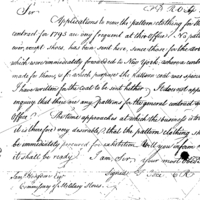 Sir
Applications to view the pattern clothing for the
contract for 1795 are very frequent at this Office. No pattern
ever, except shoes, has been sent here, since those for the
which were immediately forwarded to New York, where a contract
made for them, & for which purpose the patterns sent were
I have written for the coat to be sent hither. It does not appear
inquiry that there are any patterns for the general contract
Office. The time approaches at which the business is to
it is therefore very desirable, that the pattern clothing
be immediately prepared for exhibition. Will you inform
it shall be ready. I am Sir, Your most obed
Signed
Sam Hodgdon Esq
Commissary of Military Stores